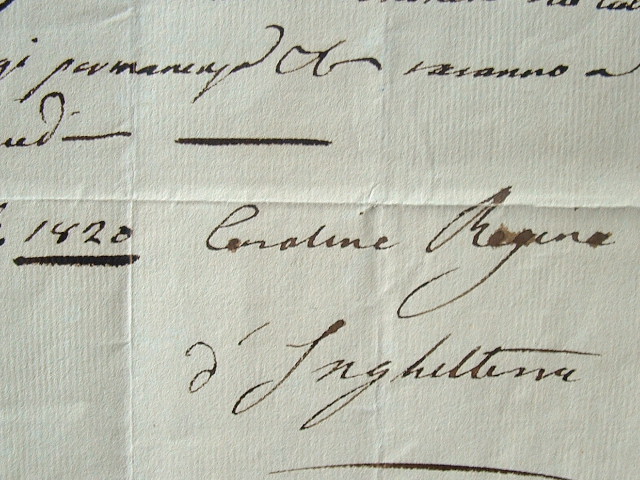 permanenza saranno a
1820 Caroline Regina
d'Inghilterra